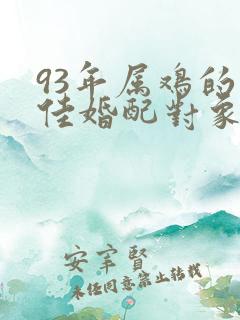 93年属鸡的
佳婚配对象
安宰贤
未经同意禁止转载